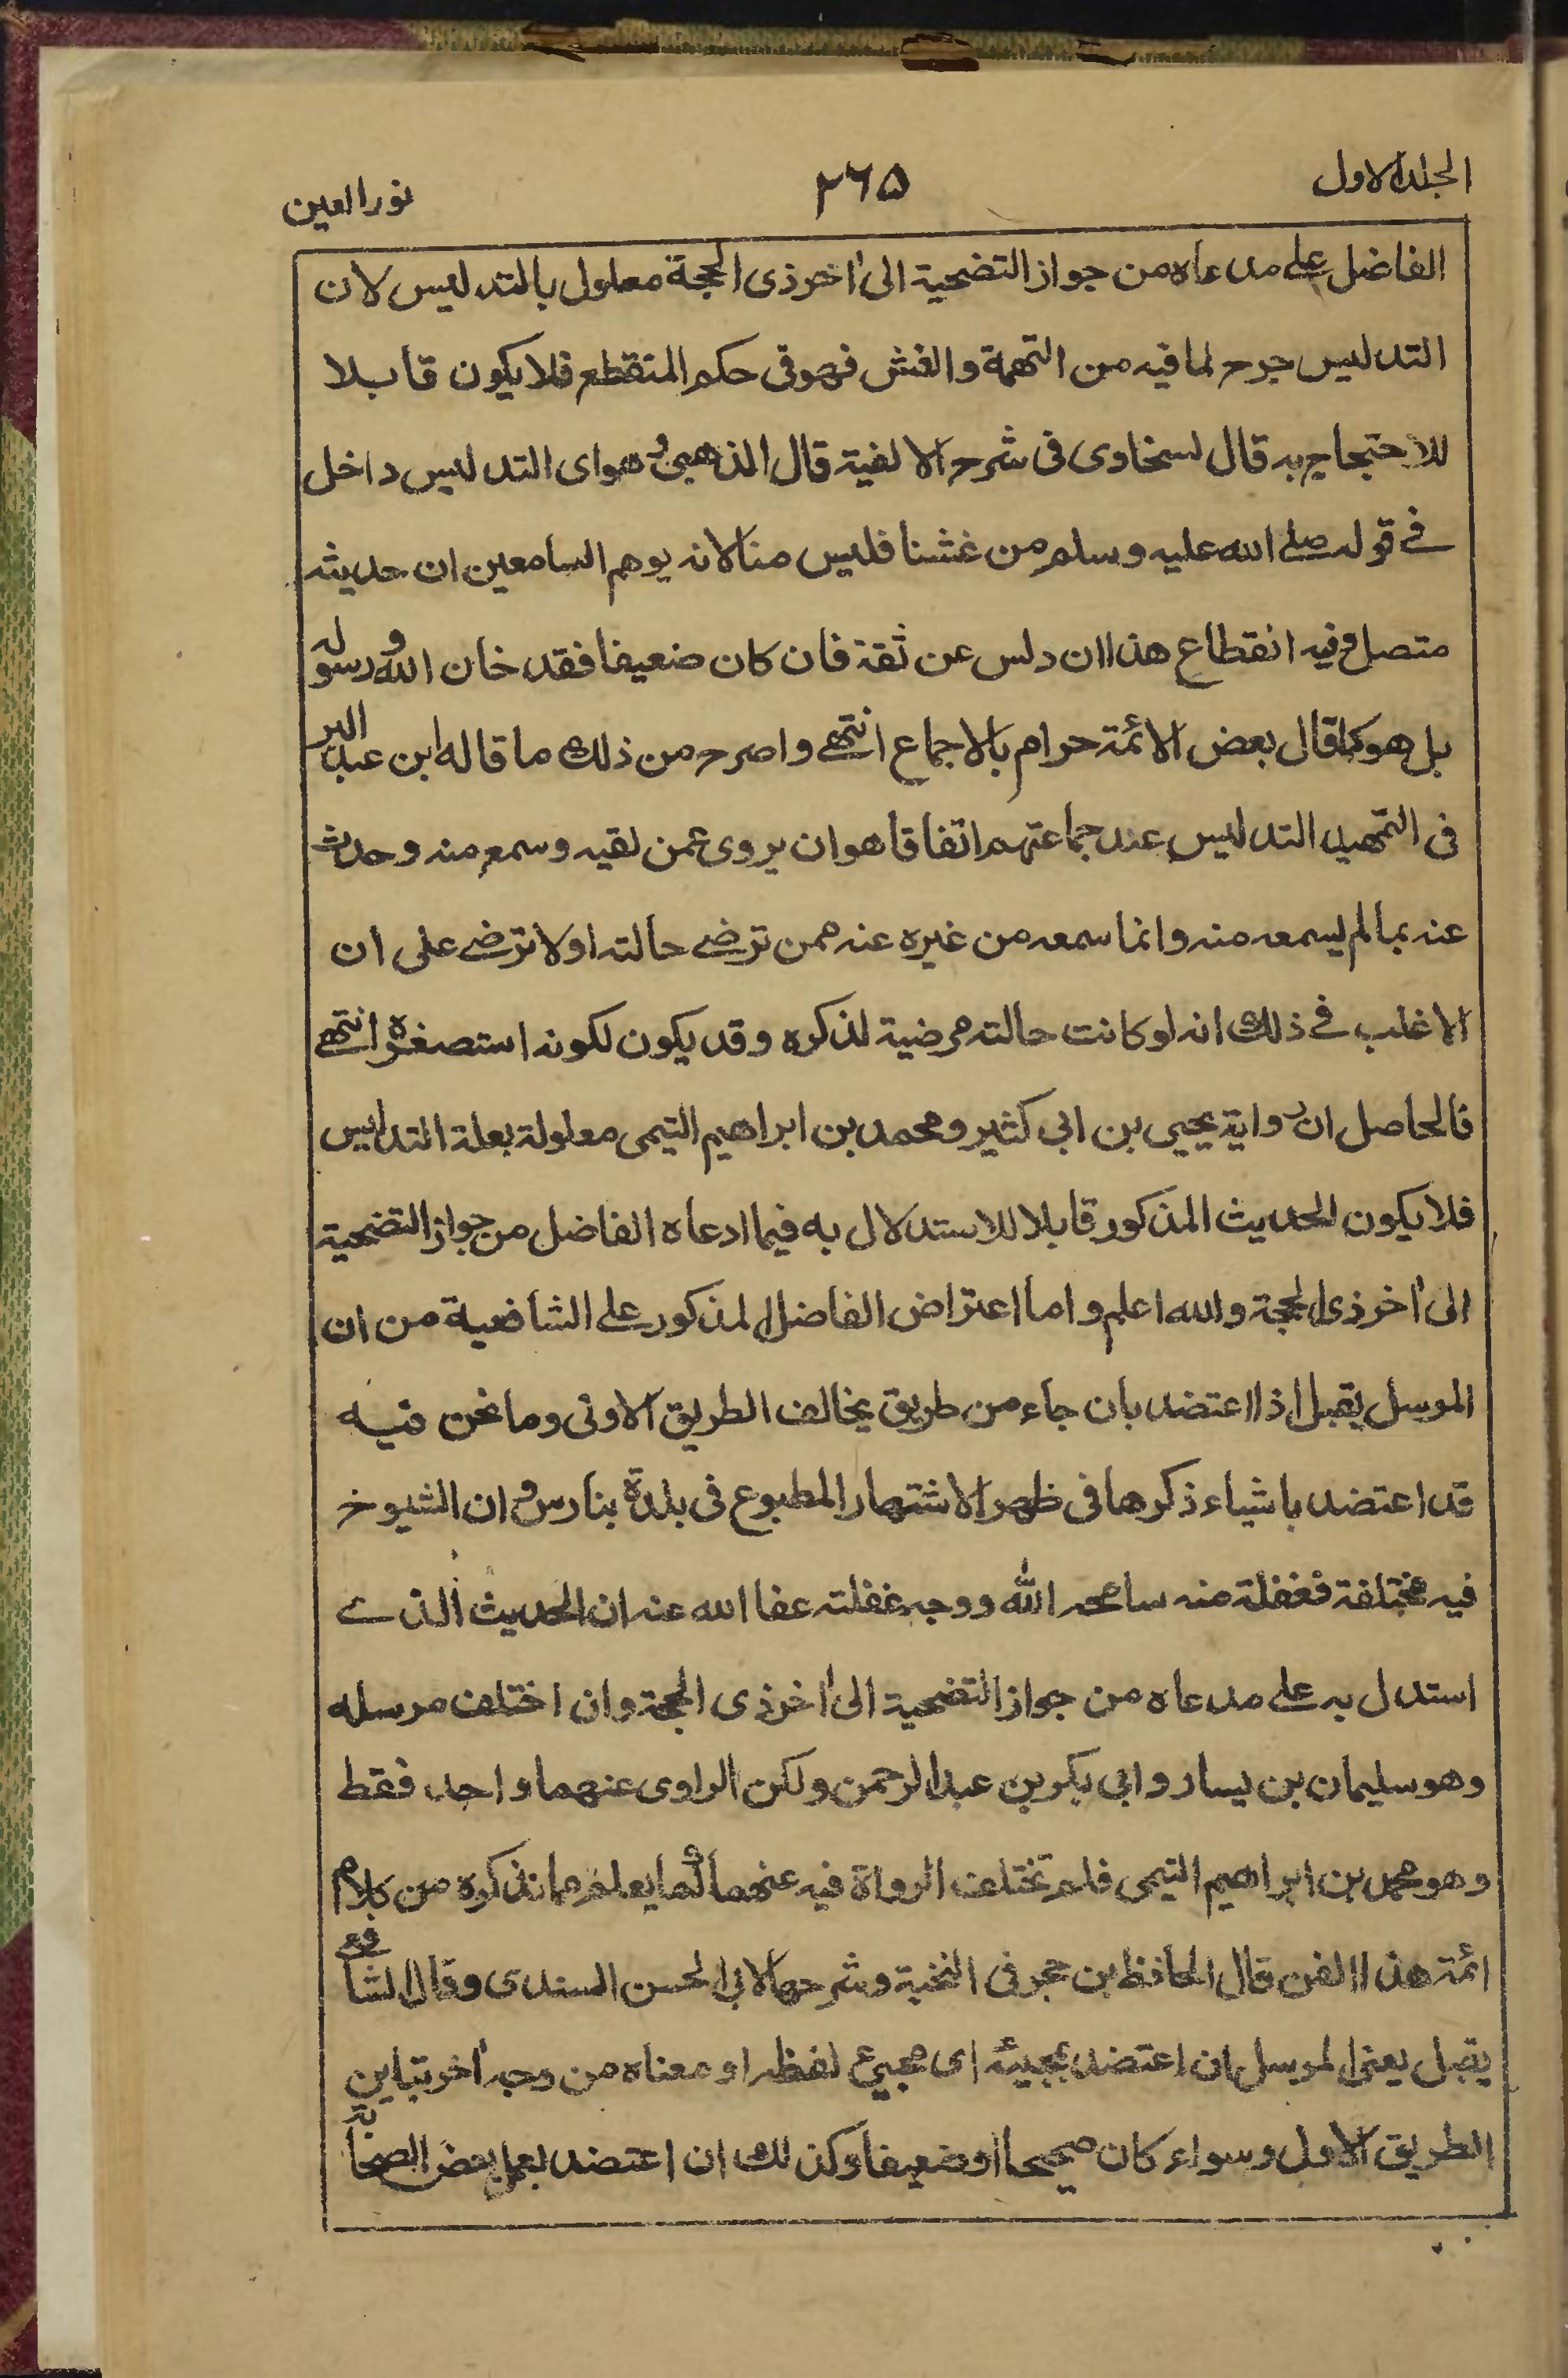 الجلد الاول
۲۶۵
نور العين
الفاضل على مدعاه من جواز التضحية الى اخر ذى الحجة معلول بالتدليس لان
التدليس جرح لما فيه من التهمة والغش فهو فى حكم المنقطع فلا يكون قابلا
للاحتجاج به قال لسخاوى فى شرح الالفية قال الذهبى وهو اى التدليس داخل
فے قوله صلے الله عليه وسلم من غشنا فليس منا لانه يوهم السامعين ان حديثه
متصل وفيه انقطاع هذا ان دلس عن ثقة فان كان ضعيفا فقد خان الله ورسوله
بل هو كما قال بعض الائمة حرام بالاجماع انتهے واصرح من ذلك ما قاله ابن عبد البر
فى التمهيد التدليس عند جماعتهم اتفاقا هو ان يروى عمن لقيه وسمع منه وحدث
عنه بما لم يسمعه منه وانما سمعه من غيره عنه ممن ترضے حالته او لا ترضے على ان
الاغلب فے ذلك انه لو كانت حالته مرضية لذكره وقد يكون لكونه استصغره انتهے
فالحاصل ان رواية يحيى بن ابى كثير ومحمد بن ابراهيم التيمى معلولة بعلة التدليس
فلا يكون الحديث المذكور قابلا للاستدلال به فيما ادعاه الفاضل من جواز التضحية
الى اخر ذى الحجة والله اعلم واما اعتراض الفاضل المذكور على الشافعية من ان
المرسل يقبل اذا اعتضد بان جاء من طريق يخالف الطريق الاولى وما نحن فيه
قد اعتضد باشياء ذكرها فى ظهر الاشتهار المطبوع فى بلدة بنارس وان الشيوخ
فيه مختلفة فغفلة منه سامحه الله ووجه غفلته عفا الله عنه ان الحديث الذے
استدل به على مدعاه من جواز التضحية الى اخر ذى الحجة وان اختلف مرسله
وهو سليمان بن يسار وابى بكر بن عبد الرحمن ولكن الراوى عنهما واحد فقط
وهو محمد بن ابراهيم التيمى فلم تختلف الرواة فيه عنهما كما يعلم مما نذكره من كلام
ائمة هذا الفن قال الحافظ بن حجر فى النخبة وشرحها لابى الحسن السندى وقال الشافعے
يقبل يعنى المرسل ان اعتضد بمجيئه اى مجيئ لفظه او معناه من وجه اخر يباين
الطريق الاول وسواء كان صحيحا او ضعيفا وكذلك ان اعتضد بعمل بعض الصحابة